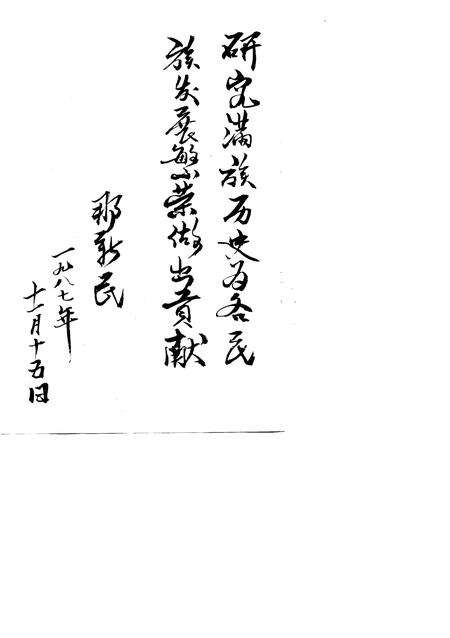 研究满族历史为各民
族发展繁荣做出贡献
那新民
一九八七年
十一月十五日